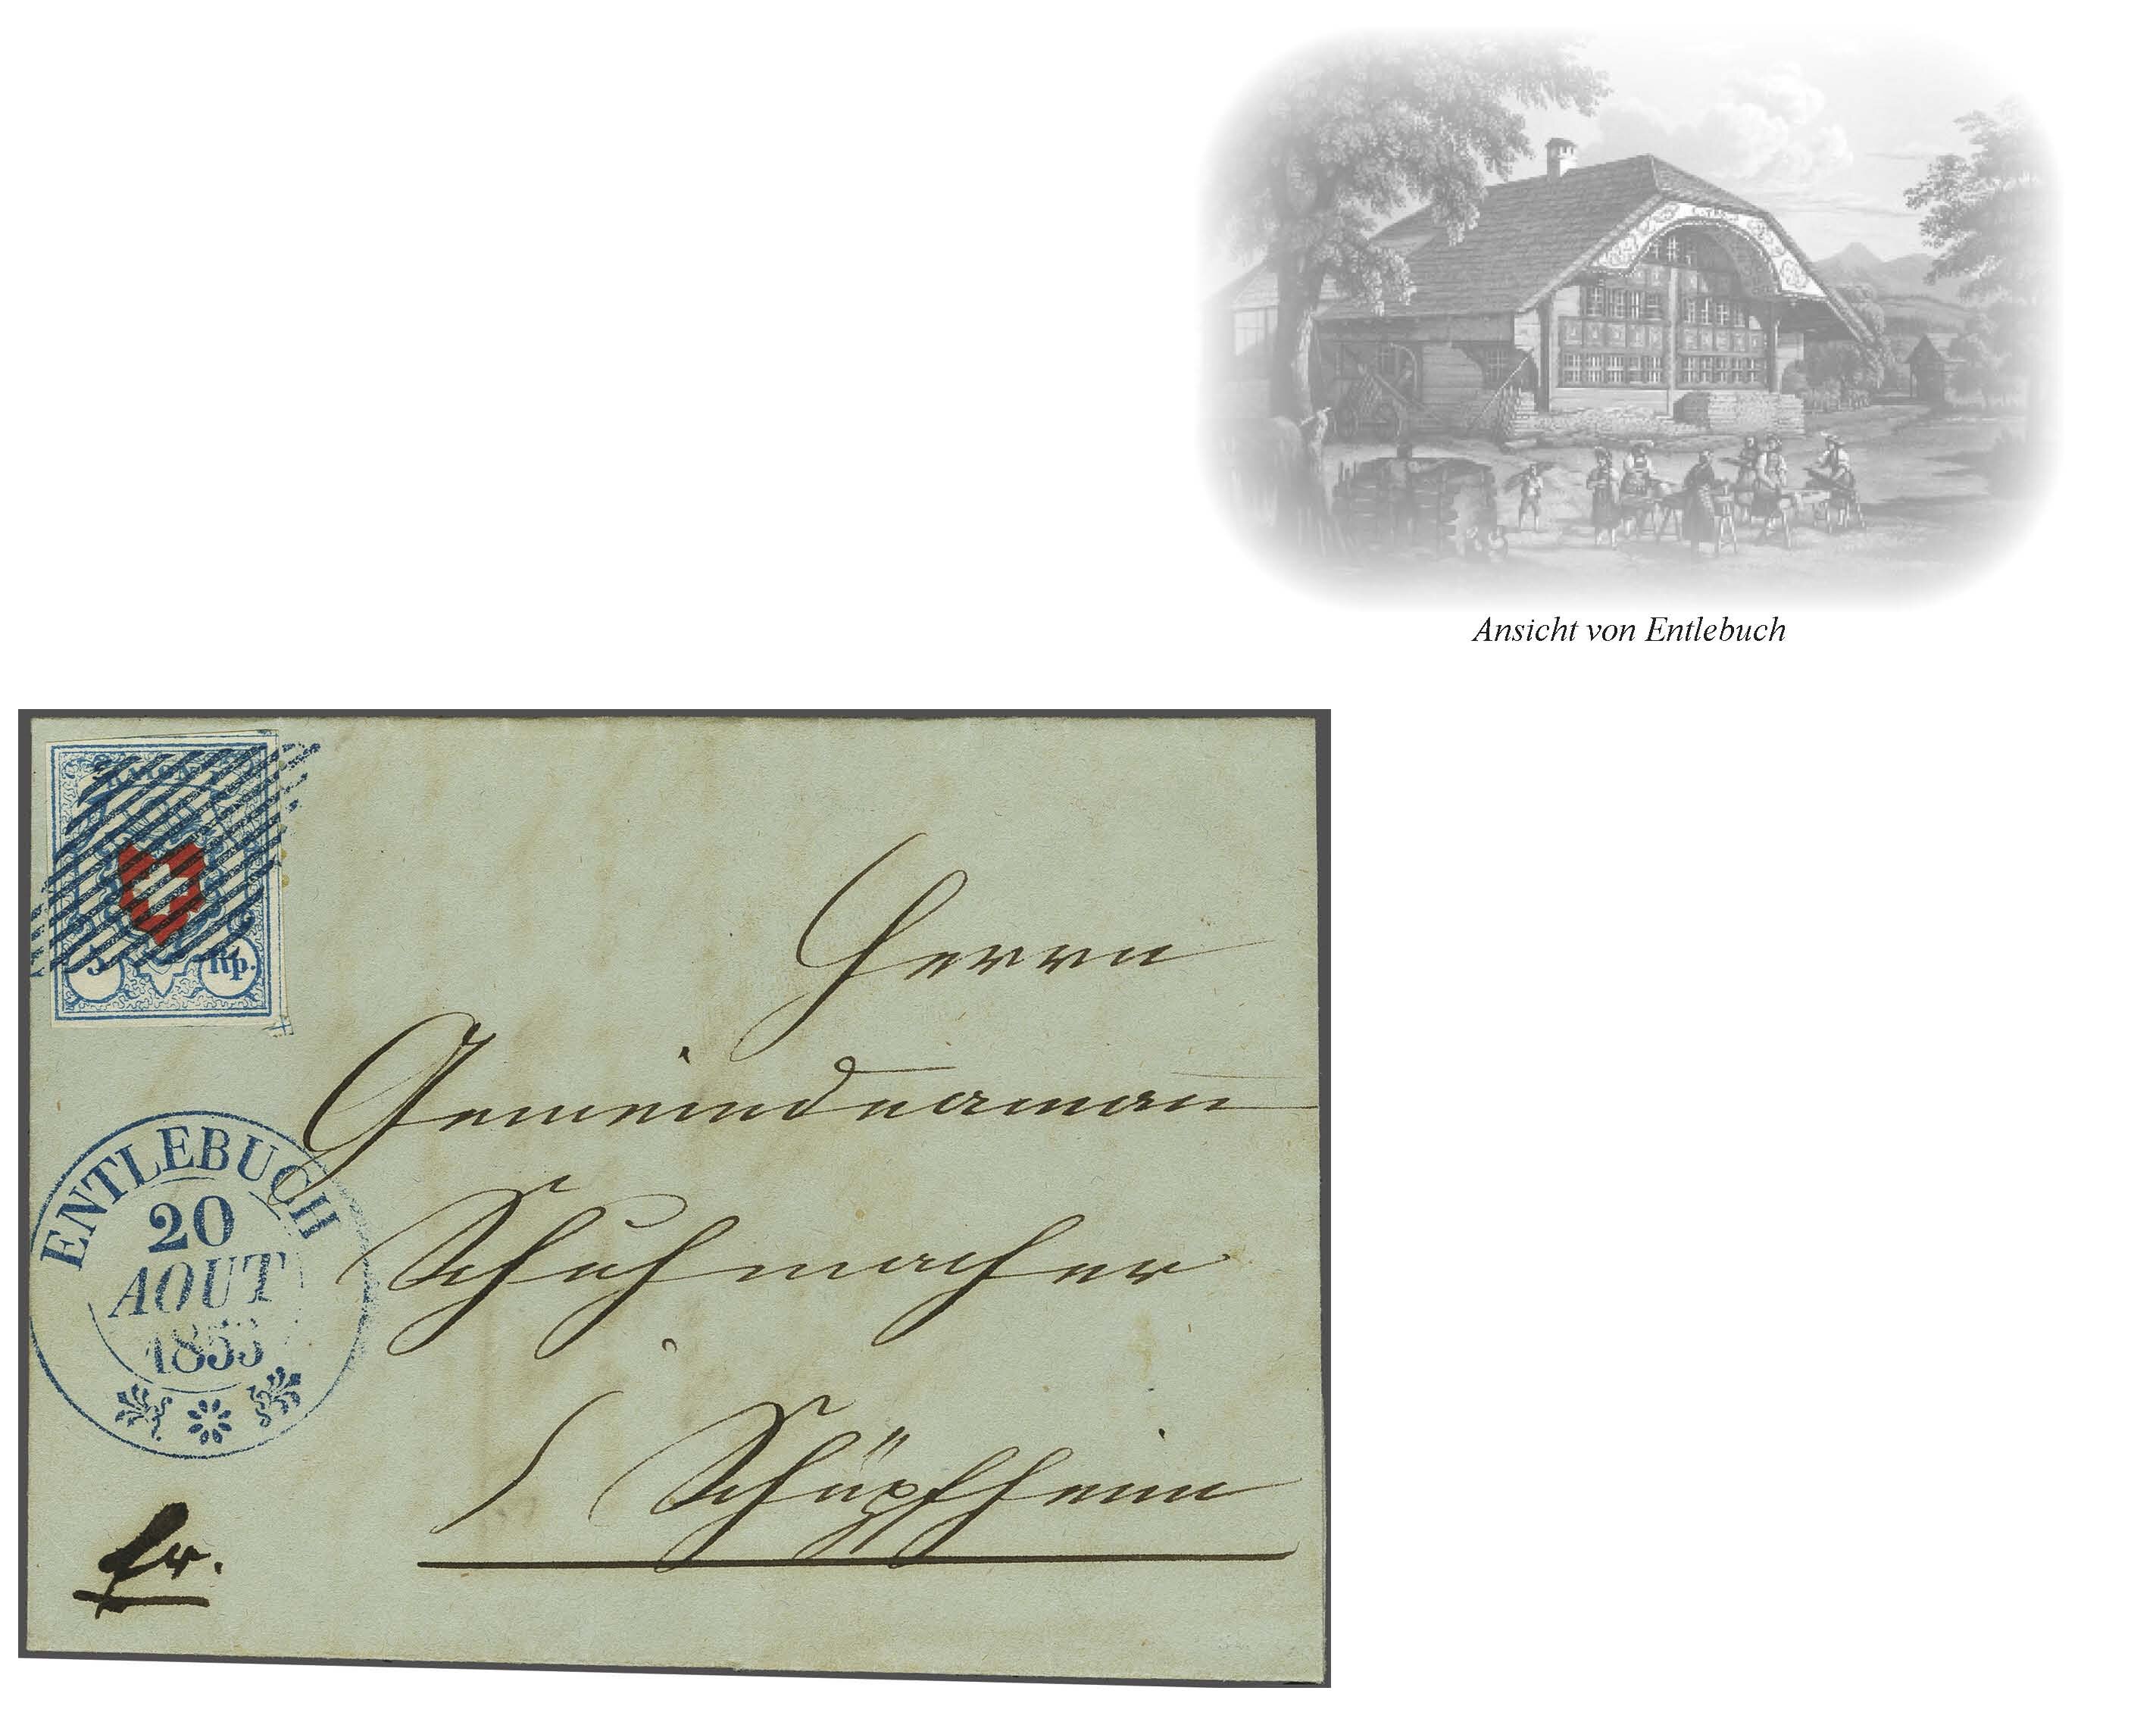 Ansicht von Entlebuch
Rp.
Herrn
Gemeindeaman̄
Schuhmacher
Schüpfheim
ENTLEBUCH
20
AOUT
1853
fr.